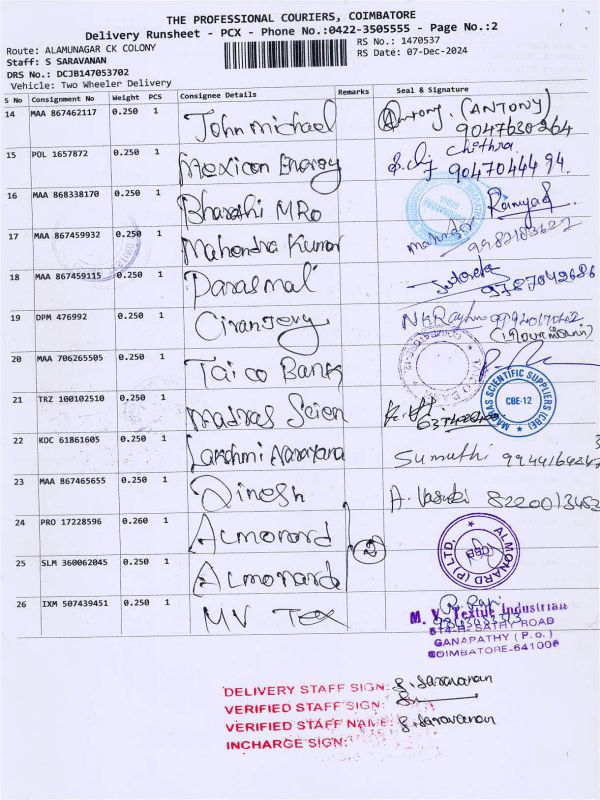 THE PROFESSIONAL COURIERS, COIMBATORE
Delivery Runsheet - PCX - Phone No.:0422-3505555 - Page No.:2
Route: ALAMUNAGAR CK COLONY
RS No.: 1470537
Staff: S SARAVANAN
RS Date: 07-Dec-2024
DRS No.: DCJB147053702
Vehicle: Two Wheeler Delivery
S No Consignment No Weight PCS Consignee Details Remarks Seal & Signature
14 MAA 867462117 0.250 1 John michael Antony. (ANTONY)
9047630264
15 POL 1657872 0.250 1 Mexicon Energy chithra
9047044494.
16 MAA 868338170 0.250 1 Bharathi MRO Ramyas
17 MAA 867459932 0.250 1 Mahendra Kumar
18 MAA 867459115 0.250 1 Parasmal
9787042686
19 DPM 476992 0.250 1
20 MAA 706265505 0.250 1 Taico Bank
21 TRZ 100102510 0.250 1 Madras Scien
MADRAS SCIENTIFIC SUPPLIERS (CBE)
CBE-12
22 KOC 61861605 0.250 1 Lakshmi Narayana Sumathi
23 MAA 867465655 0.250 1 Dinesh A. Vasuki
24 PRO 17228596 0.260 1 Almonard
2
ALMONARD (P) LTD.
25 SLM 360062045 0.250 1 Almonard
26 IXM 507439451 0.250 1 MV Tex
M. V. Textile Industrian
SATHY ROAD
GANAPATHY (P.o.)
COIMBATORE-641006
DELIVERY STAFF SIGN: S. Saravanan
VERIFIED STAFF SIGN:
VERIFIED STAFF NAME: S. Saravanan
INCHARGE SIGN: